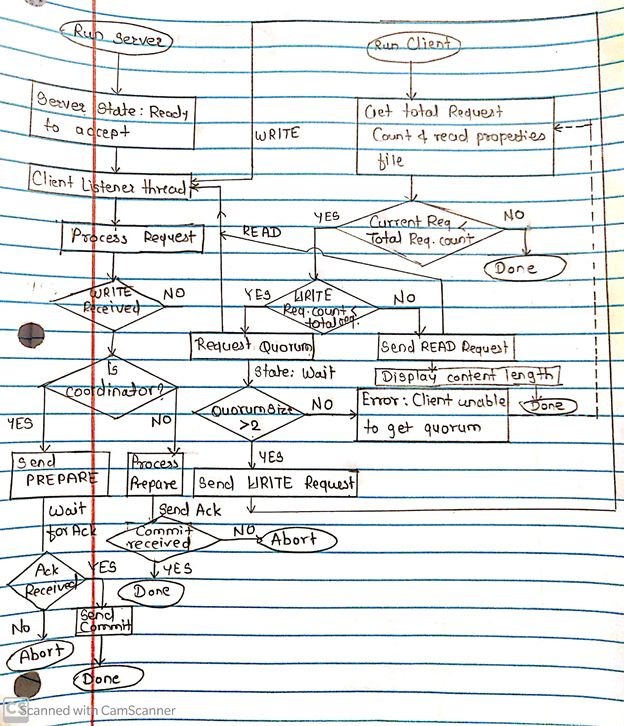 Run Server
Run Client
Server State: Ready
to accept
Get total Request
Count & read properties
file
WRITE
Client Listener thread
Process Request
READ
YES
Current Req <
Total Req. count
NO
Done
WRITE
Received
NO
YES
WRITE
Req. count <
total req.
NO
Request Quorum
Send READ Request
State: Wait
Display content length
Is
coordinator?
Quorum size
>2
NO
Error: Client unable
to get quorum
Done
YES
NO
YES
Send
PREPARE
Process
Prepare
Send WRITE Request
Wait
for Ack
Send Ack
Commit
received
NO
Abort
Ack
Received
YES
YES
Done
Send
Commit
No
Abort
Done
CS Scanned with CamScanner